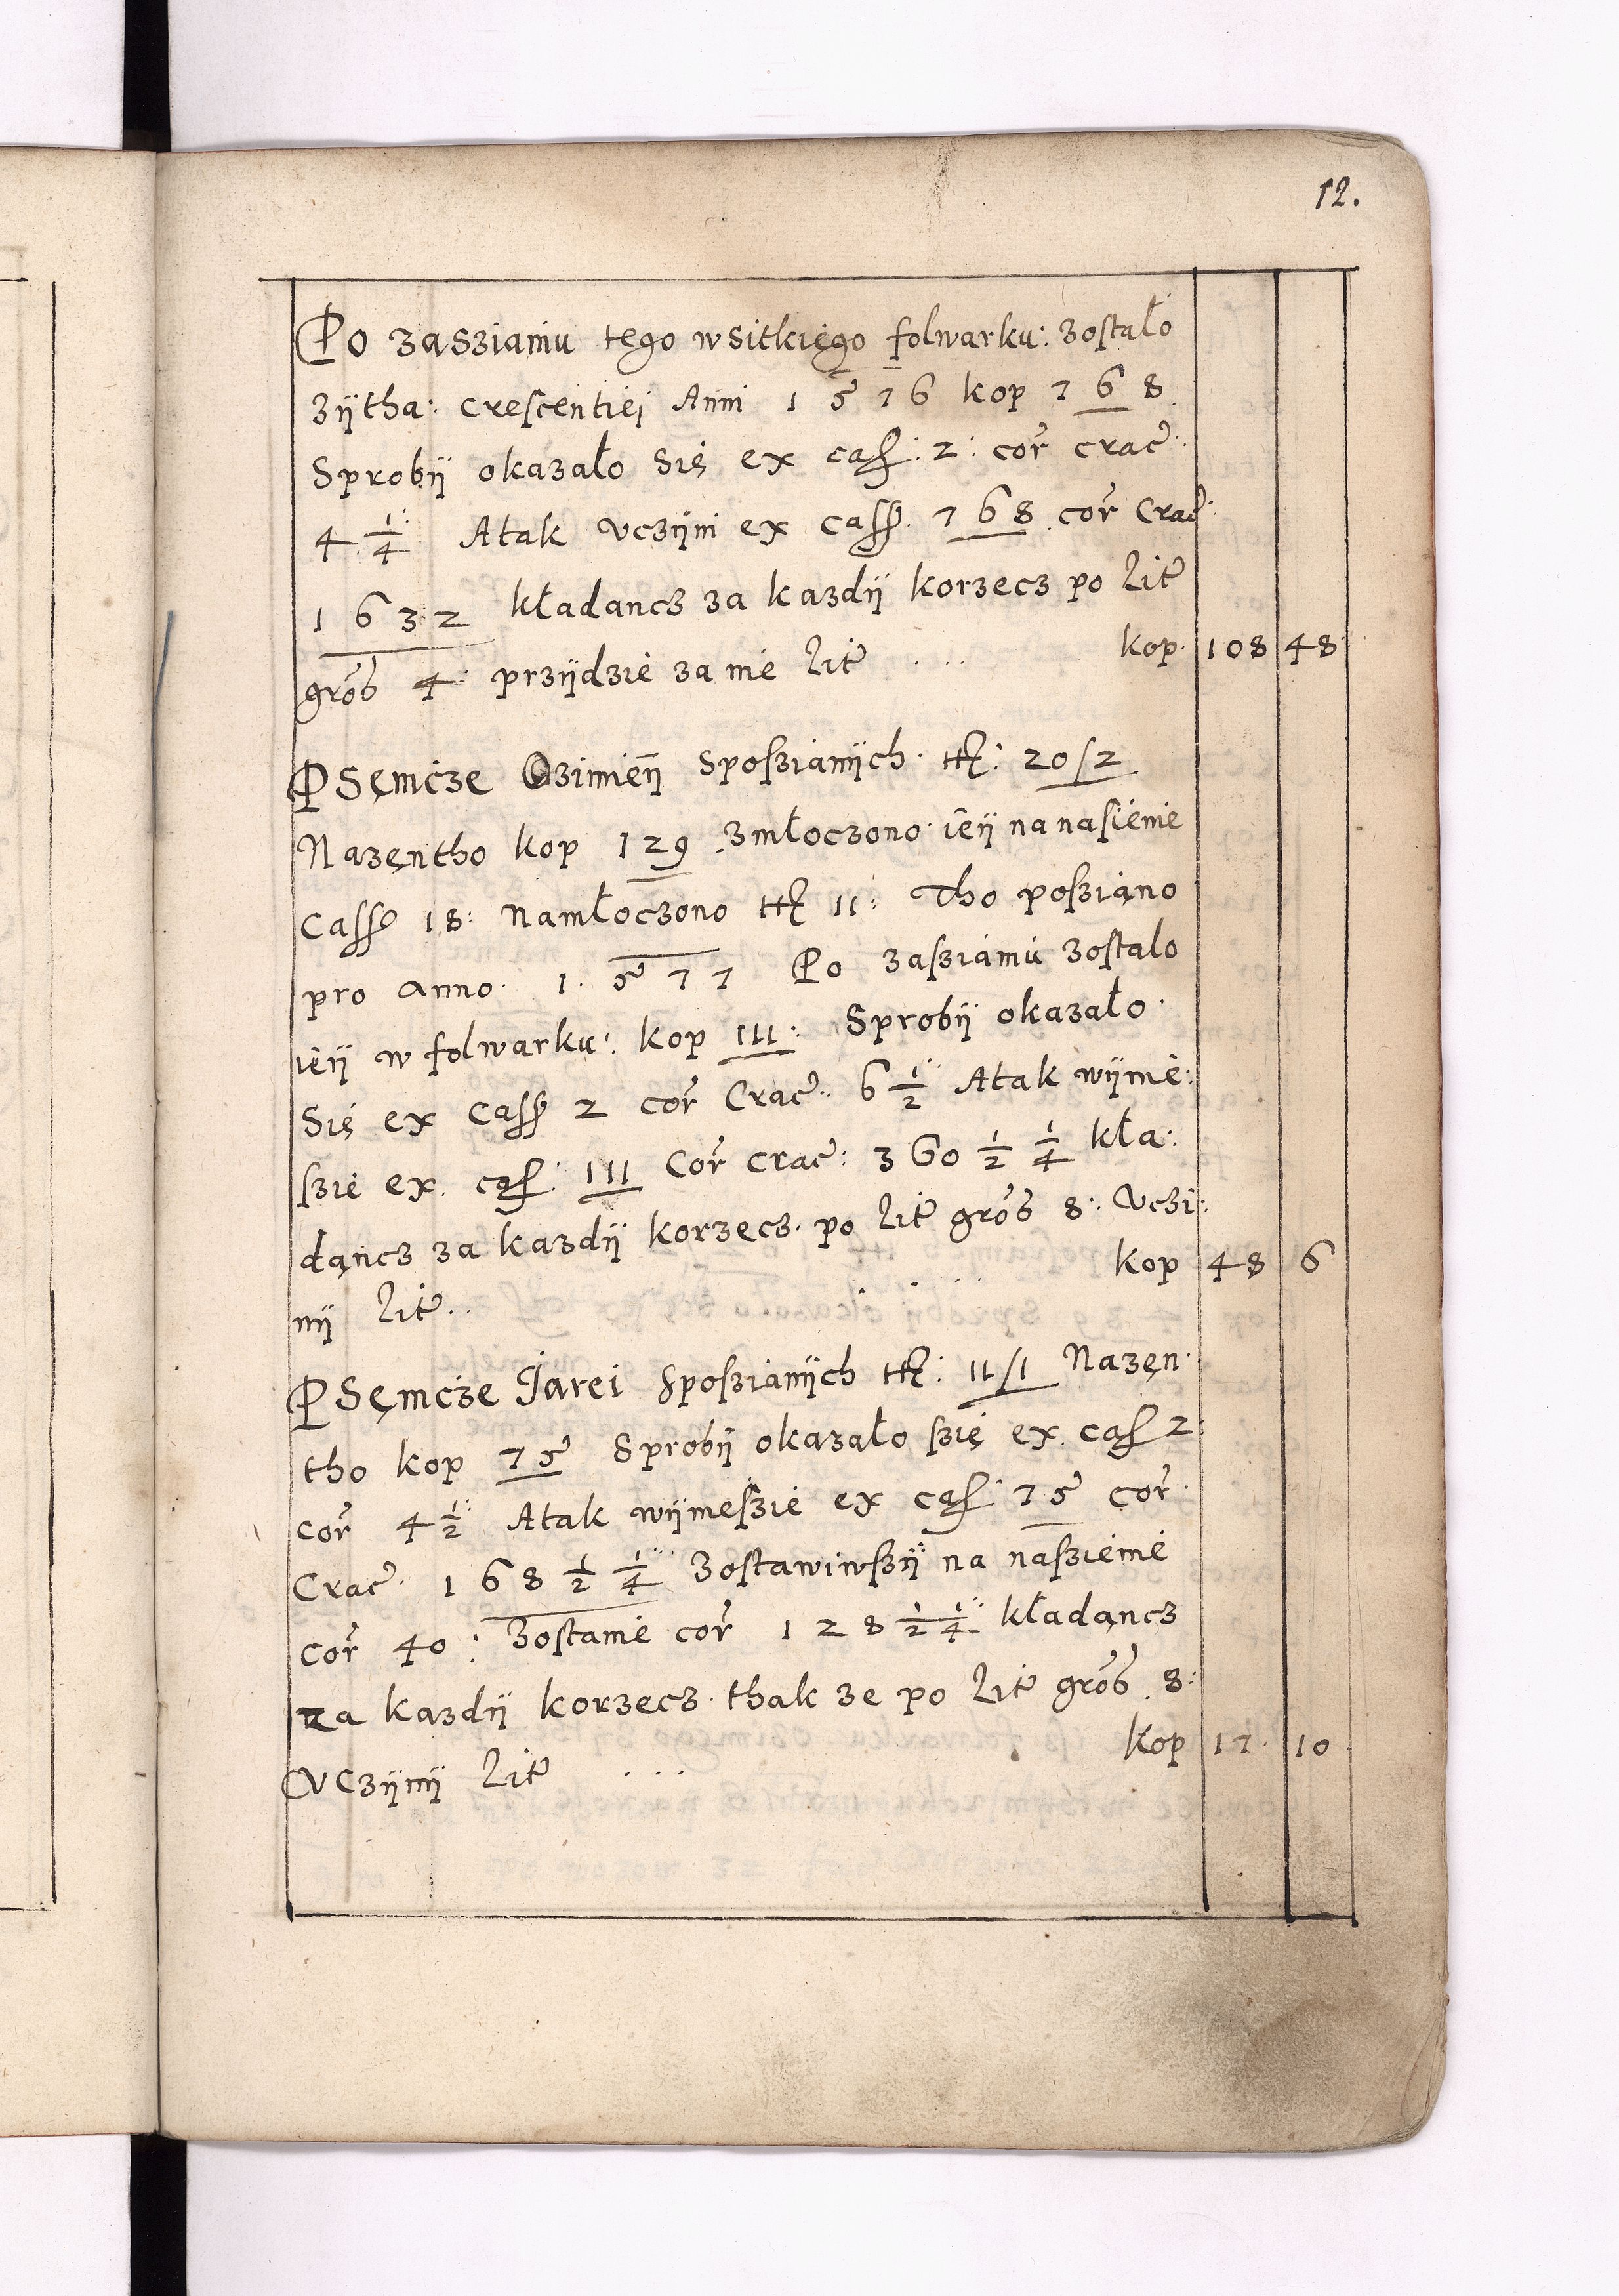 12.
Po zaszianiu tego wsitkięgo folwarku: zostało
zijtha: crescentiej Anni 1576 kop 768
Sprobij okazało się ex cass: 2: cor̃ crac̃:
4 1/4 Atak vczijni ex cass. 768 cor̃ Crac̃:
1632 kładancz za kazdij korzecz po lit̃
gros̃ 4 przijdzie za nie lit̃ ... kop. 108 48
Psęmcze Ozimieÿ Sposzianijch tt: 20/2
Nazęntho kop 129 zmłoczono ieij na nasienie
Casse 18: namłoczono tt 11: Tho posziąno
pro anno 1.577 Po zaszianiu zostalo
ieij w folwarku: kop 111: Sprobij okazało
Się ex Cass 2 cor̃ Crac̃: 6 1/2 Atak wijmie:
szie ex cass 111 Cor̃ crac̃: 360 1/2 1/4 kła:
dąncz za kazdij korzecz po lit̃ gros̃ 8: Vczi:
nij lit̃.. kop 48 6
Psęmcze Jarei Sposzianijch tt: 11/1 Nazęn
tho kop 75 Sprobij okazało szię ex cass 2
cor̃ 4 1/2 Atak wijmieszie ex cass 75 cor̃
Crac̃ 168 1/2 1/4 Zostawiwszij na naszienie
cor̃ 40: Zostanie cor̃ 128 1/2 1/4 kładąncz
za kazdij korzecz thak ze po lit̃ gros̃ 8:
Vczijnij lit̃ ... kop 17 10